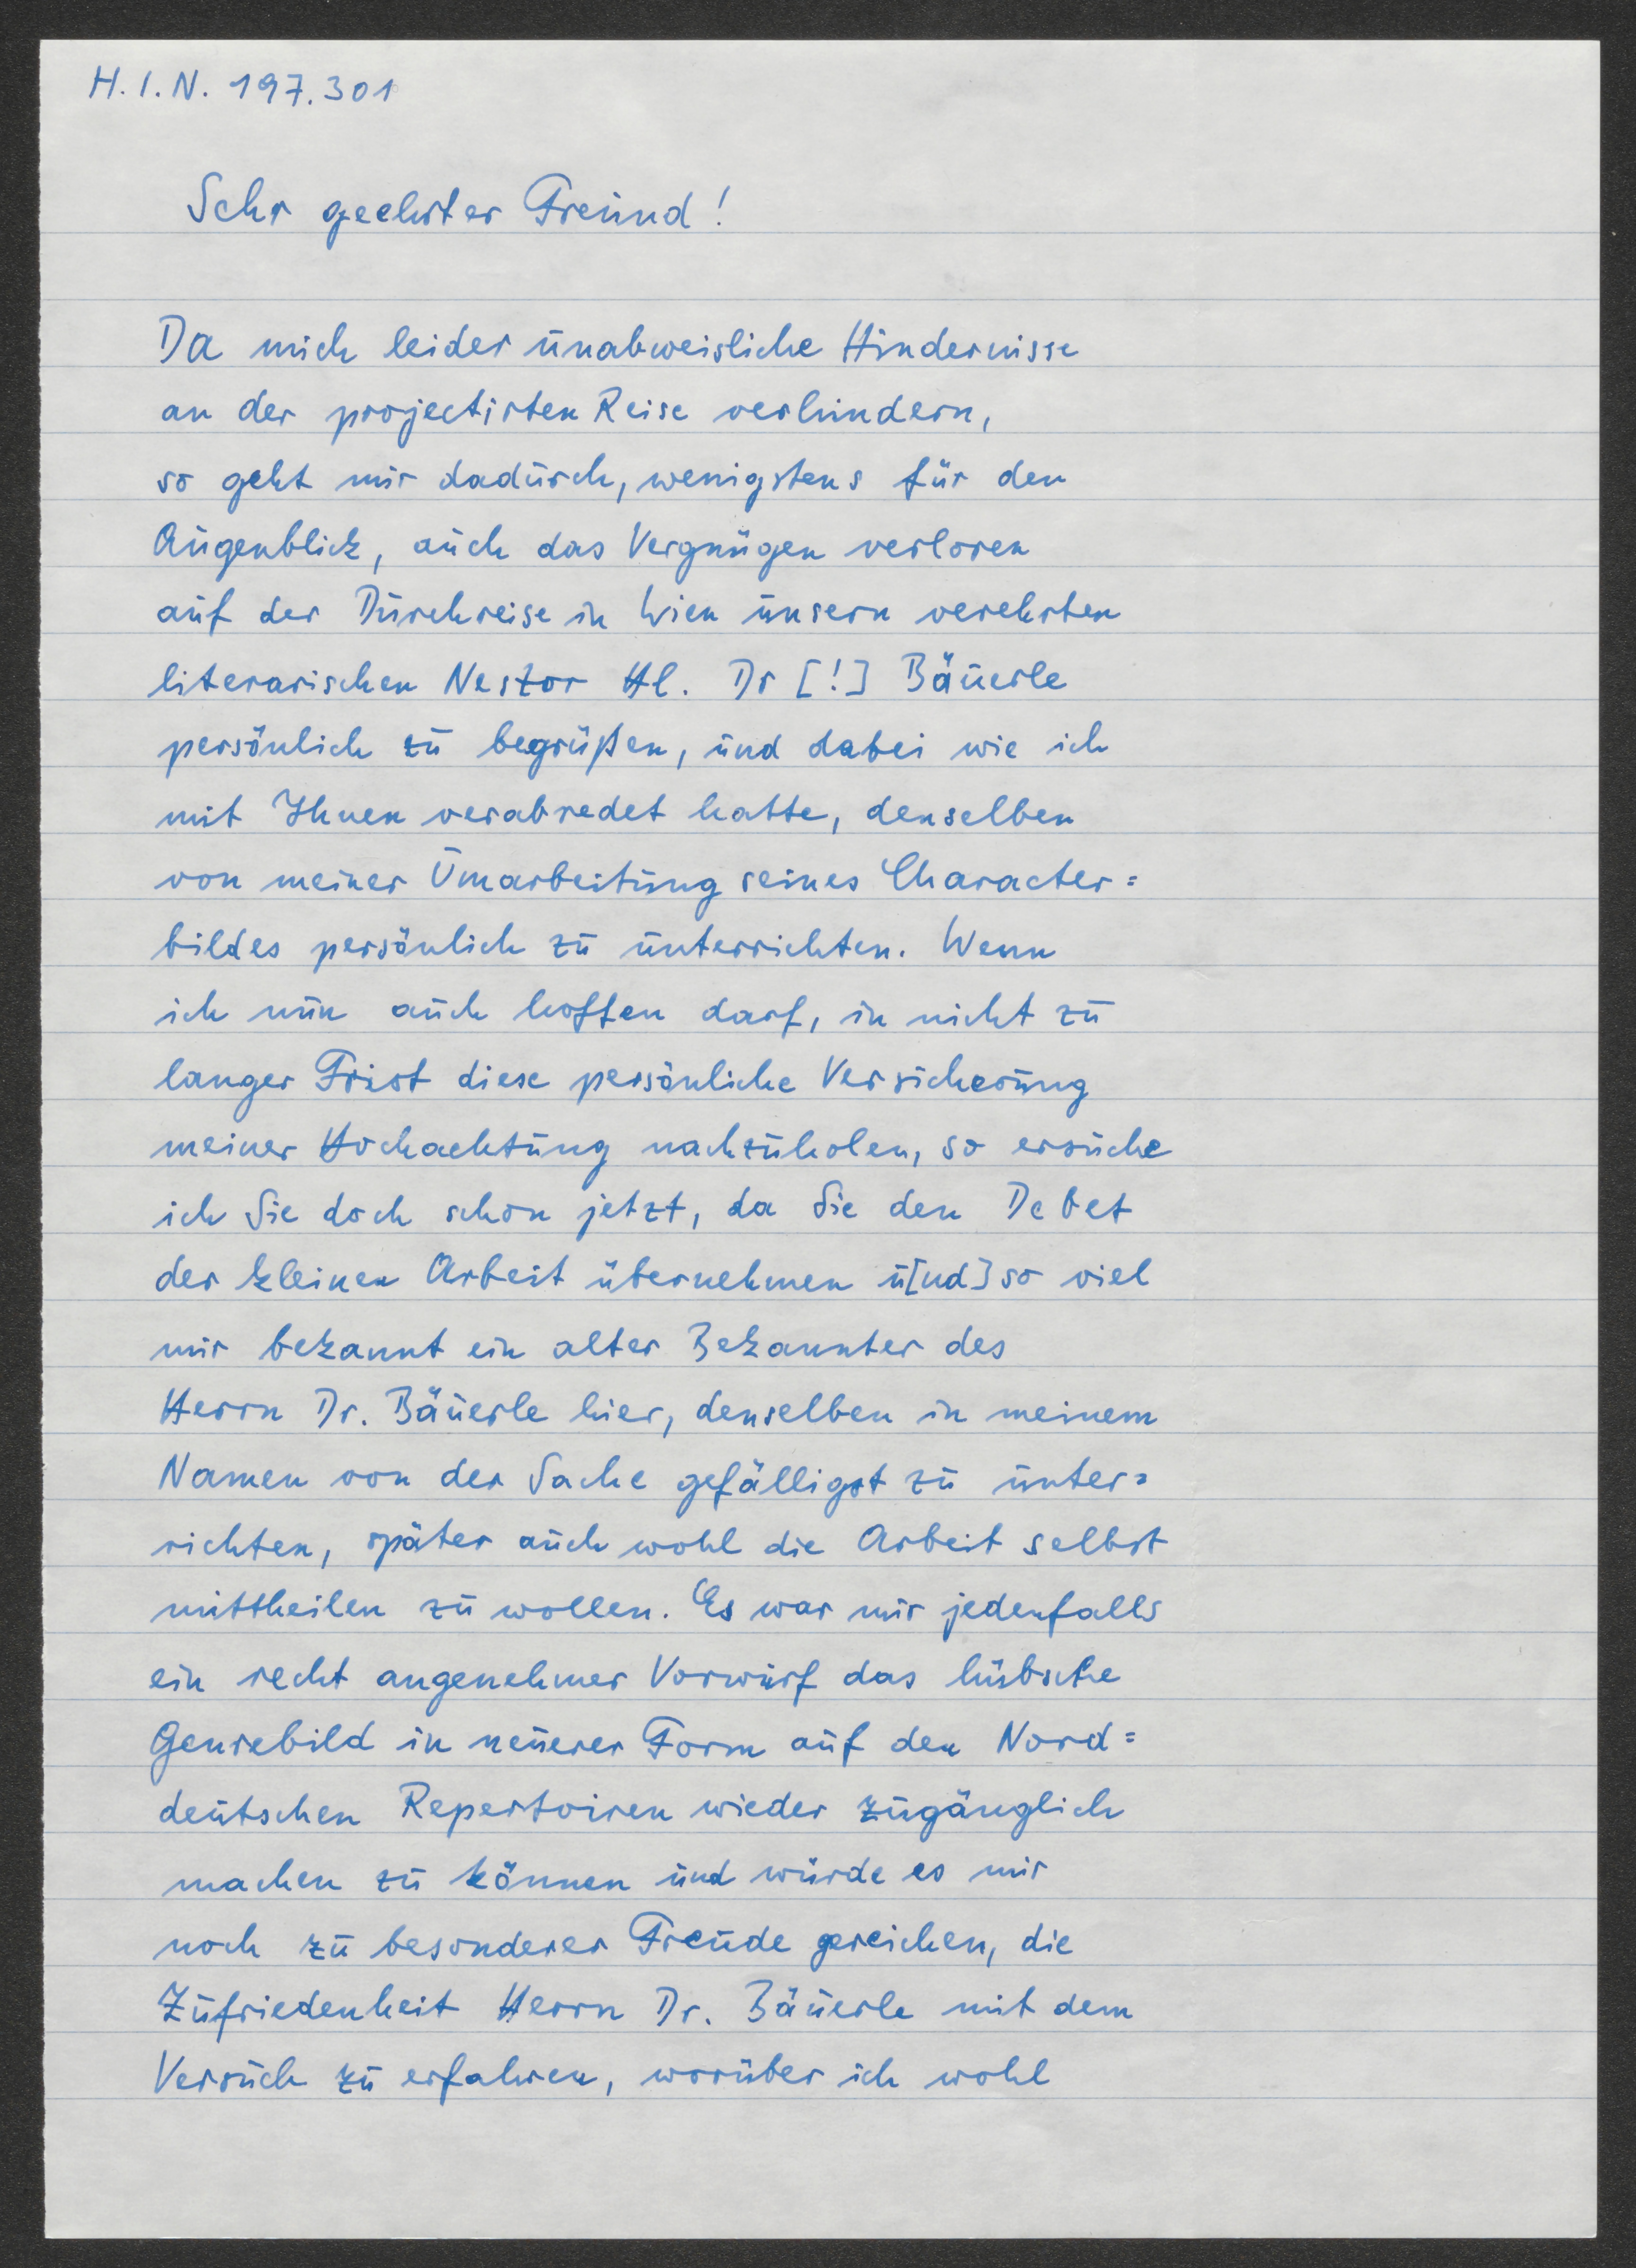 H.I.N. 197.301
Sehr geehrter Freund!
Da mich leider unabweisliche Hindernisse
an der projectirten Reise verhindern,
so geht mir dadurch, wenigstens für den
Augenblick, auch das Vergnügen verloren
auf der Durchreise in Wien unsern verehrten
literarischen Nestor Hl. Dr [!] Bäuerle
persönlich zu begrüßen, und dabei wie ich
mit Ihnen verabredet hatte, denselben
von meiner Umarbeitung seines Character=
bildes persönlich zu unterrichten. Wenn
ich nun auch hoffen darf, in nicht zu
langer Frist diese persönliche Versicherung
meiner Hochachtung nachzuholen, so ersuche
ich Sie doch schon jetzt, da Sie den Debet
der kleinen Arbeit übernehmen u[nd] so viel
mir bekannt ein alter Bekannter des
Herrn Dr. Bäuerle hier, denselben in meinem
Namen von der Sache gefälligst zu unter=
richten, später auch wohl die Arbeit selbst
mittheilen zu wollen. Es war mir jedenfalls
ein recht angenehmer Vorwurf das hübsche
Genrebild in neuerer Form auf den Nord=
deutschen Repertoiren wieder zugänglich
machen zu können und würde es mir
noch zu besonderer Freude gereichen, die
Zufriedenheit Herrn Dr. Bäuerle mit dem
Versuch zu erfahren, worüber ich wohl